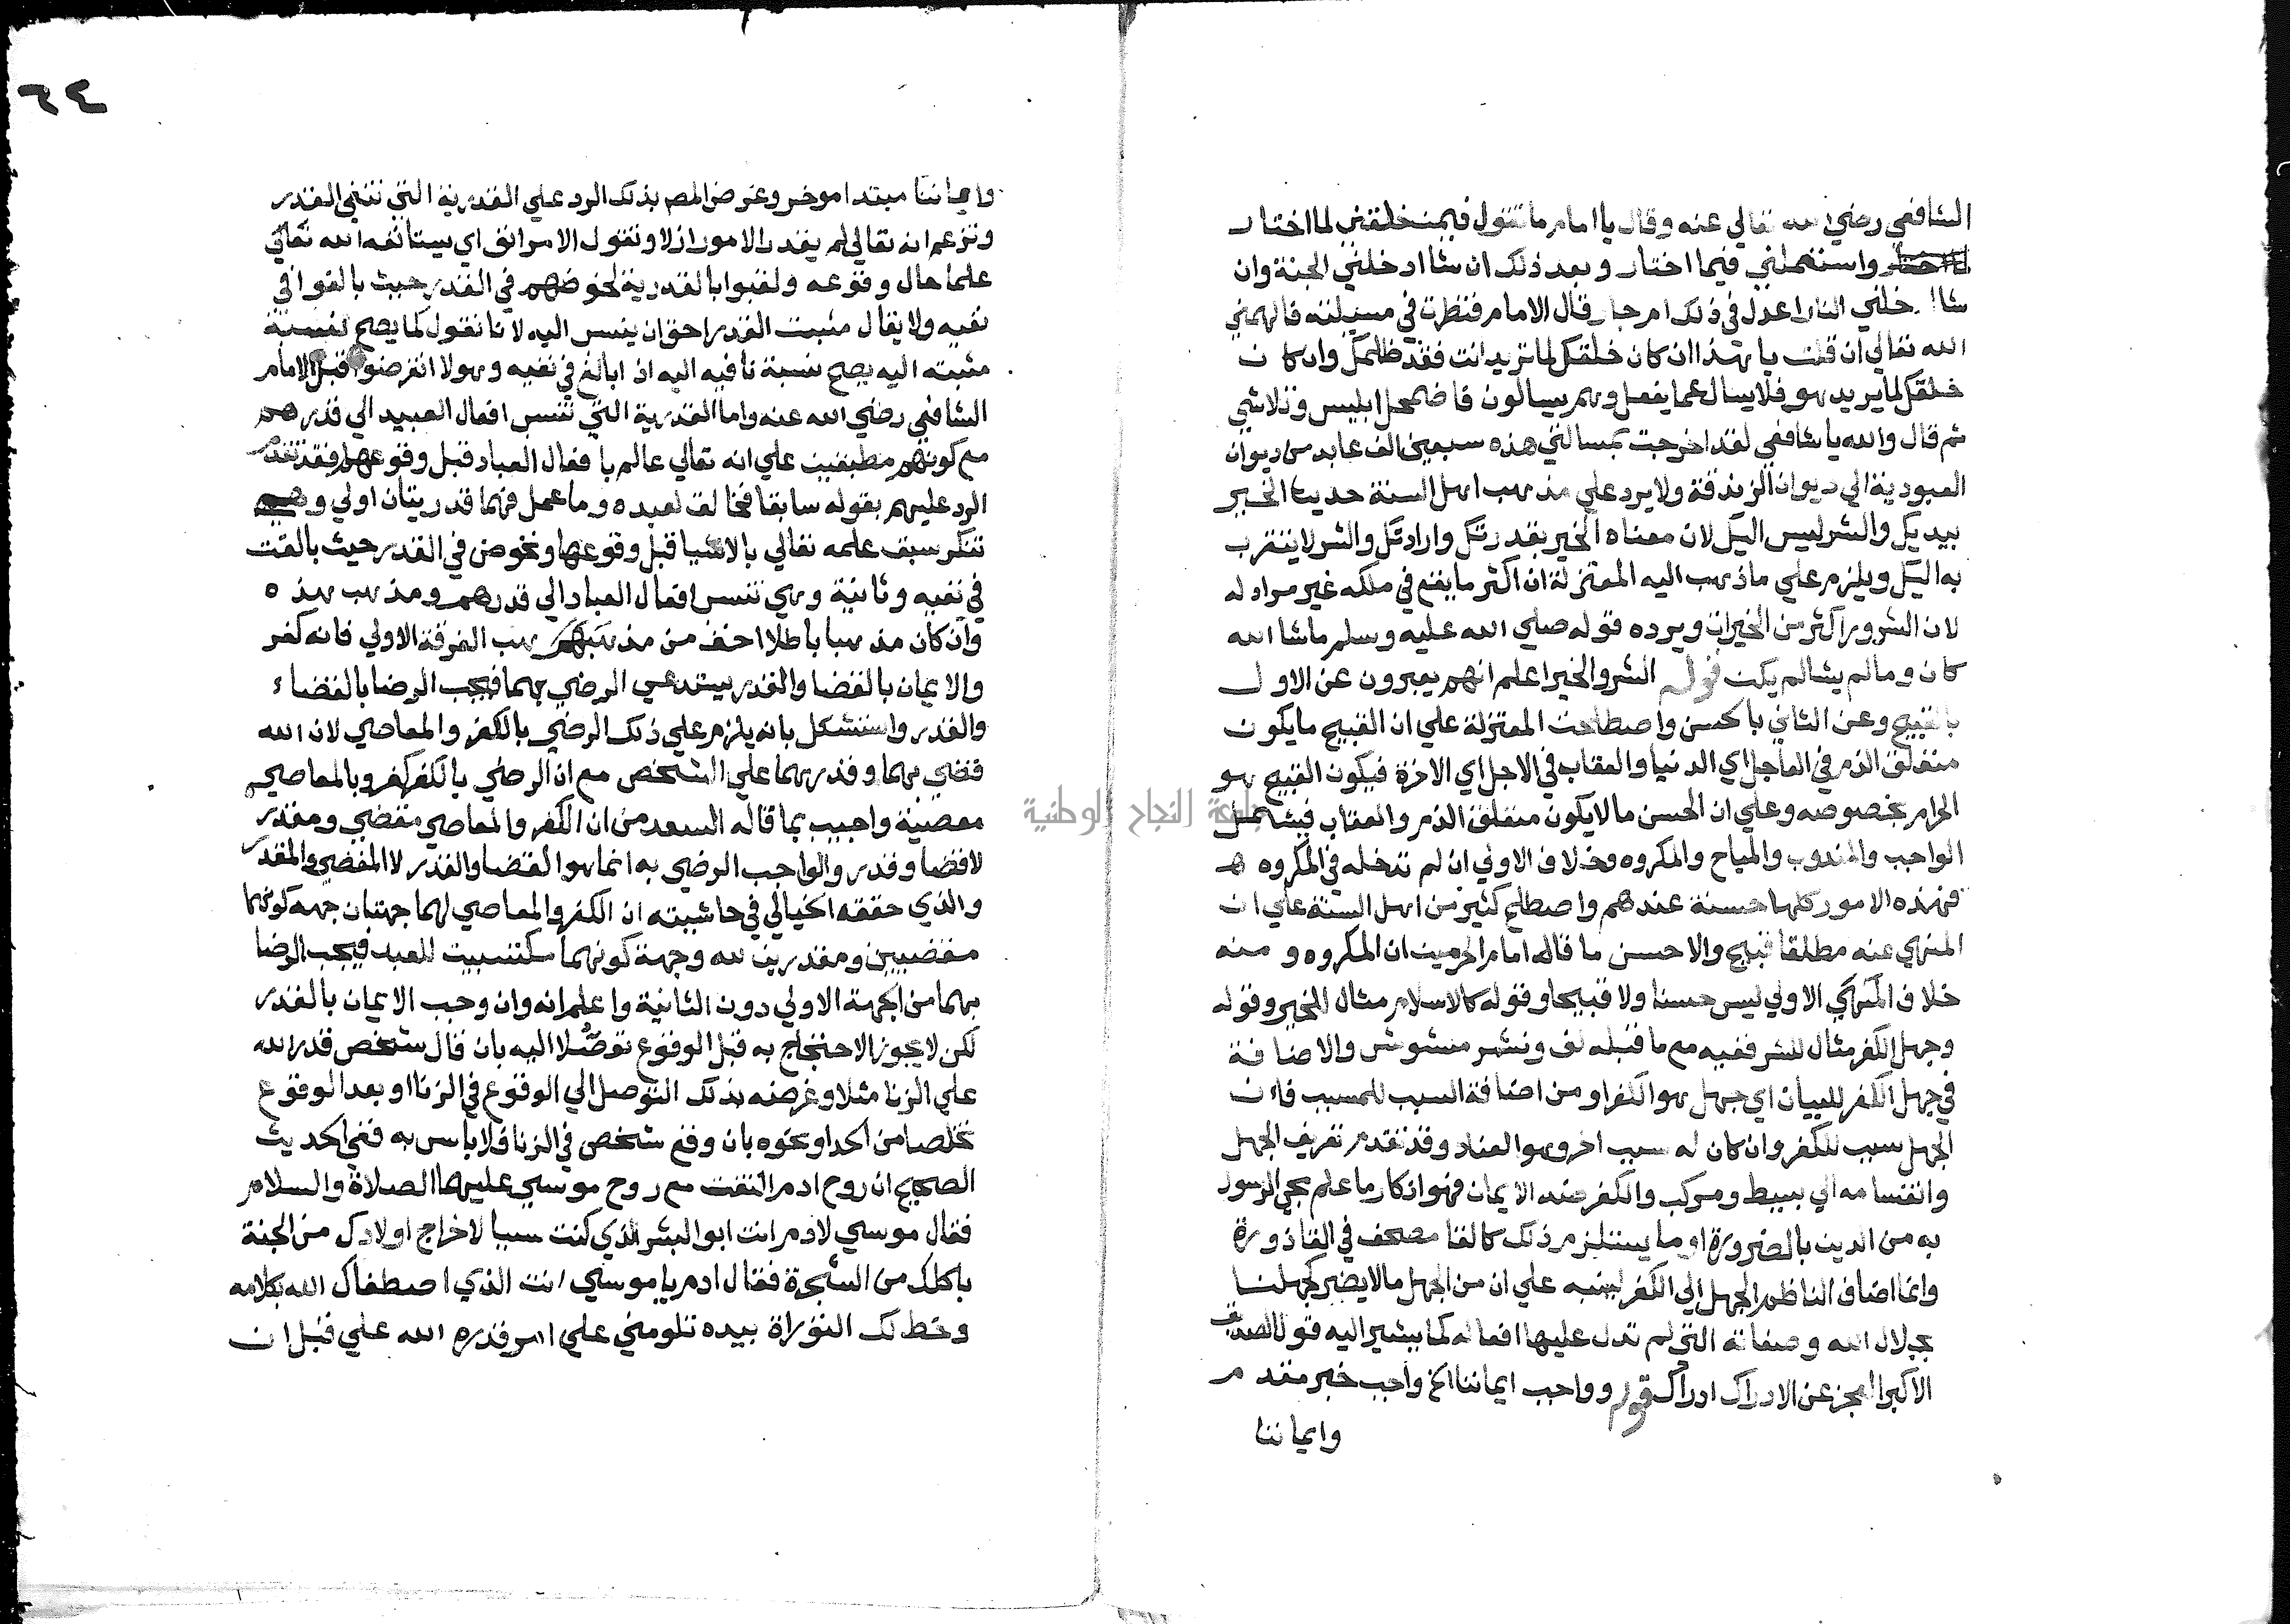 الشافعي رضي الله تعالي عنه وقال يا امام ما تقول فيمن خلقني لما اختار
واستعملني فيما اختار وبعد ذلك ان شا ادخلني الجنة وان
شا ادخلني النار اعدل في ذلك ام جار قال الامام فنظرت في مسيلته فالهمني
الله تعالي ان قلت يا هذا ان كان خلقك لما تريد انت فقد ظلمك وان كان
خلقك لما يريد هو فلا يسال عما يفعل وهم يسالون فاضمحل ابليس وتلاشي
ثم قال والله يا شافعي لقد اخرجت بمسالتي هذه سبعين الف عابد من ديوان
العبودية الي ديوان الزندقة ولا يرد علي مذهب اهل السنة حديث الخير
بيديك والشر ليس اليك لان معناه الخير بقدرتك وارادتك والشر لا يتقرب
به اليك ويلزم علي ما ذهب اليه المعتزلة ان اكثر ما يقع في ملكه غير مراد له
لان الشرور اكثر من الخيرات ويرده قوله صلي الله عليه وسلم ما شا الله
كان وما لم يشا لم يكن قوله الشر والخير اعلم انهم يعبرون عن الاول
بالقبيح وعن الثاني بالحسن واصطلحت المعتزلة علي ان القبيح ما يكون
متعلق الذم في العاجل اي الدنيا والعقاب في الاجل اي الاخرة فيكون القبيح هو
الحرام بخصوصه وعلي ان الحسن ما لا يكون متعلق الذم والعقاب فيشمل
الواجب والمندوب والمباح والمكروه وخلاف الاولي ان لم تدخله في المكروه
فهذه الامور كلها حسنة عندهم واصطلح كثير من اهل السنة علي ان
المنهي عنه مطلقا قبيح والاحسن ما قاله امام الحرمين ان المكروه ومنه
خلاف الاولي ليس حسنا ولا قبيحا وقوله كالاسلام مثال للخير وقوله
وجهل الكفر مثال للشر ففيه مع ما قبله لف ونشر مشوش والاضافة
في جهل الكفر للبيان اي جهل هو الكفر او من اضافة السبب للمسبب فان
الجهل سبب للكفر وان كان له سبب اخر وهو العناد وقد تقدم تعريف الجهل
وانقسامه الي بسيط ومركب والكفر ضد الايمان فهو انكار ما علم مجي الرسول
به من الدين بالضرورة او ما يستلزم ذلك كالقا مصحف في القاذورة
وانما اضاف الناظم الجهل الي الكفر لينبه علي ان من الجهل ما لا يضر كجهلنا
بجلال الله وصفاته التي لم تدل عليها افعاله كما يشير اليه قول الصديق
الاكبر العجز عن الادراك ادراك قوله وواجب ايماننا الخ واجب خبر مقدم
وايماننا
جامعة النجاح الوطنية
وايماننا مبتدا موخر وغرض المص بذلك الرد علي القدرية التي تنفي القدر
وتزعم انه تعالي لم يقدر الامور ازلا وتقول الامر انف اي يستانفه الله تعالي
علما حال وقوعه ولقبوا بالقدرية لخوضهم في القدر حيث بالغوا في
نفيه ولا يقال مثبت القدر احق ان ينسب اليه لانا نقول كما يصح نسبة
مثبته اليه يصح نسبة نافيه اليه اذا بالغ في نفيه وهولا انقرضوا قبل الامام
الشافعي رضي الله عنه واما القدرية التي تنسب افعال العبيد الي قدرهم
مع كونهم مطبقين علي انه تعالي عالم بافعال العباد قبل وقوعها فقد تقدم
الرد عليهم بقوله سابقا فخالق لعبده وما عمل فهما قدريتان اولي و
تنكر سبق علمه تعالي بالاشيا قبل وقوعها وتخوض في القدر حيث بالغت
في نفيه وثانية وهي تنسب افعال العباد الي قدرهم ومذهب هذه
وان كان مذهبا باطلا اخف من مذهب الفرقة الاولي فانه كفر
والايمان بالقضا والقدر يستدعي الرضي بهما فيجب الرضا بالقضاء
والقدر واستشكل بانه يلزم علي ذلك الرضي بالكفر والمعاصي لان الله
قضي بهما وقدرهما علي الشخص مع ان الرضي بالكفر كفر وبالمعاصي
معصية واجيب بما قاله السعد من ان الكفر والمعاصي مقضي ومقدر
لا قضا وقدر والواجب الرضي به انما هو القضا والقدر لا المقضي والمقدر
والذي حققه الخيالي في حاشيته ان الكفر والمعاصي لهما جهتان جهة كونهما
مقضيين ومقدرين لله وجهة كونهما مكتسبين للعبد فيجب الرضا
بهما من الجهة الاولي دون الثانية واعلم انه وان وجب الايمان بالقدر
لكن لا يجوز الاحتجاج به قبل الوقوع توصلا اليه بان قال شخص قدر الله
علي الزنا مثلا وغرضه بذلك التوصل الي الوقوع في الزنا او بعد الوقوع
تخلصا من الحد او نحوه بان وقع شخص في الزنا فلا باس به ففي الحديث
الصحيح ان روح ادم التقت مع روح موسي عليهما الصلاة والسلام
فقال موسي لادم انت ابو البشر الذي كنت سببا لاخراج اولادك من الجنة
باكلك من الشجرة فقال ادم يا موسي انت الذي اصطفاك الله بكلامه
وخط لك التوراة بيده تلومني علي امر قدره الله علي قبل ان